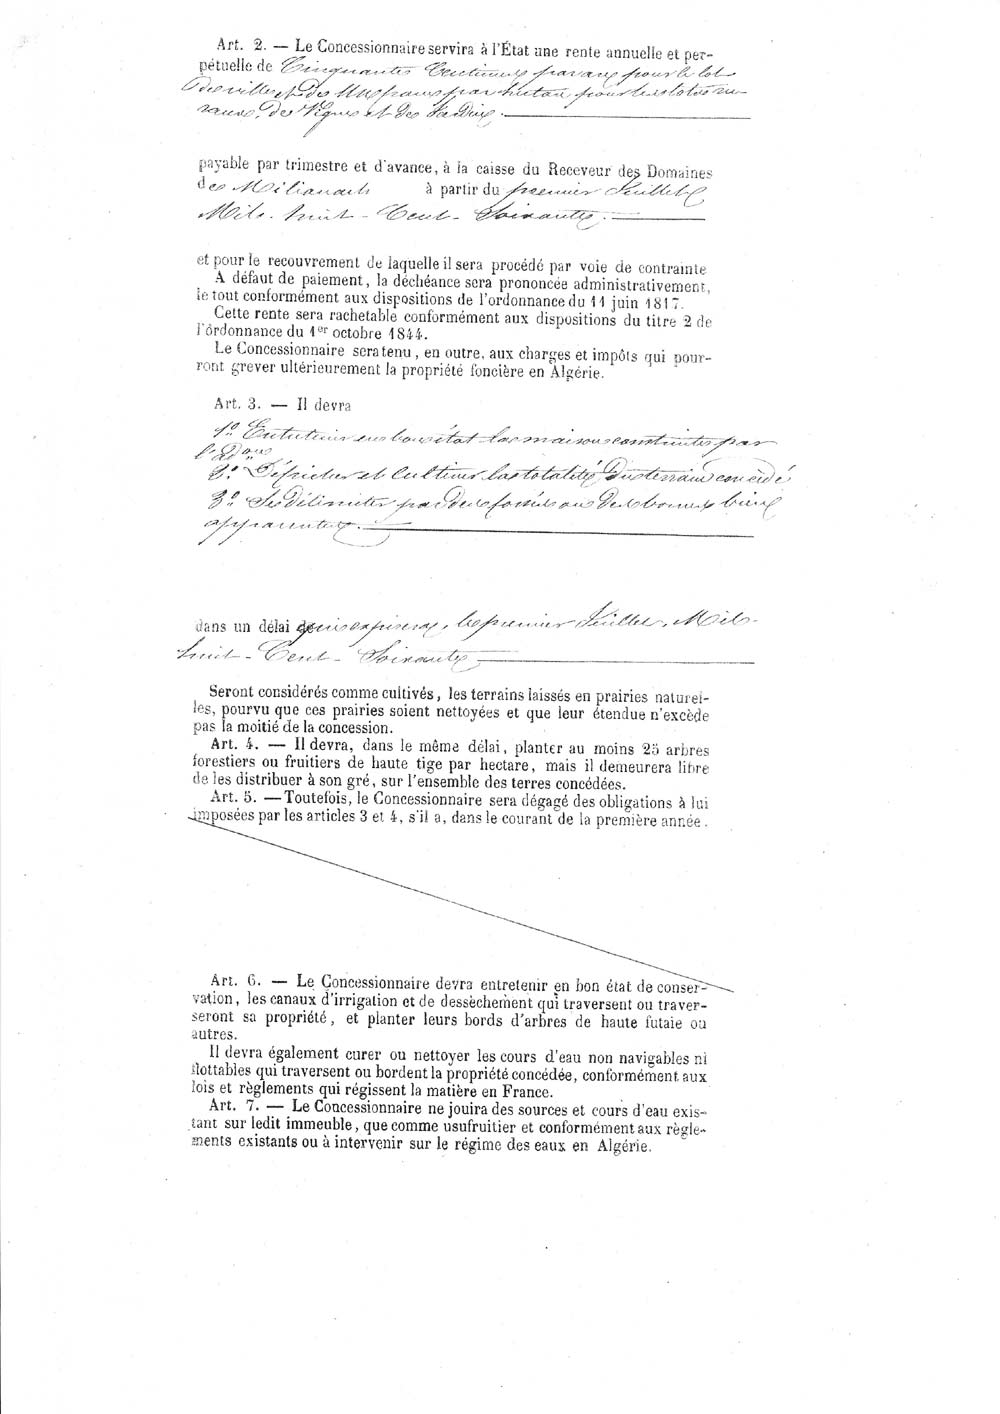 Art. 2. — Le Concessionnaire servira à l'État une rente annuelle et per-
pétuelle de Cinquante Centimes par an pour le lot
de ville et de Un franc par hectare pour les lots ru-
raux, de Vignes et de Jardin.
payable par trimestre et d'avance, à la caisse du Receveur des Domaines
de Milianah à partir du premier Juillet
Mil-huit-Cent-Soixante.
et pour le recouvrement de laquelle il sera procédé par voie de contrainte
A défaut de paiement, la déchéance sera prononcée administrativement,
le tout conformément aux dispositions de l'ordonnance du 11 juin 1817.
Cette rente sera rachetable conformément aux dispositions du titre 2 de
l'ordonnance du 1er octobre 1844.
Le Concessionnaire sera tenu, en outre, aux charges et impôts qui pour-
ront grever ultérieurement la propriété foncière en Algérie.
Art. 3. — Il devra
1° Entretenir en bon état la maison construite par
l'Adon
2° Défricher et Cultiver la totalité du terrain concédé
3° Le délimiter par des fossés ou des bornes bien
apparentes.
dans un délai qui expirera le premier Juillet Mil-
huit-Cent-Soixante
Seront considérés comme cultivés, les terrains laissés en prairies naturel-
les, pourvu que ces prairies soient nettoyées et que leur étendue n'excède
pas la moitié de la concession.
Art. 4. — Il devra, dans le même délai, planter au moins 25 arbres
forestiers ou fruitiers de haute tige par hectare, mais il demeurera libre
de les distribuer à son gré, sur l'ensemble des terres concédées.
Art. 5. — Toutefois, le Concessionnaire sera dégagé des obligations à lui
imposées par les articles 3 et 4, s'il a, dans le courant de la première année.
Art. 6. — Le Concessionnaire devra entretenir en bon état de conser-
vation, les canaux d'irrigation et de dessèchement qui traversent ou traver-
seront sa propriété, et planter leurs bords d'arbres de haute futaie ou
autres.
Il devra également curer ou nettoyer les cours d'eau non navigables ni
flottables qui traversent ou bordent la propriété concédée, conformément aux
lois et règlements qui régissent la matière en France.
Art. 7. — Le Concessionnaire ne jouira des sources et cours d'eau exis-
tant sur ledit immeuble, que comme usufruitier et conformément aux règle-
ments existants ou à intervenir sur le régime des eaux en Algérie.